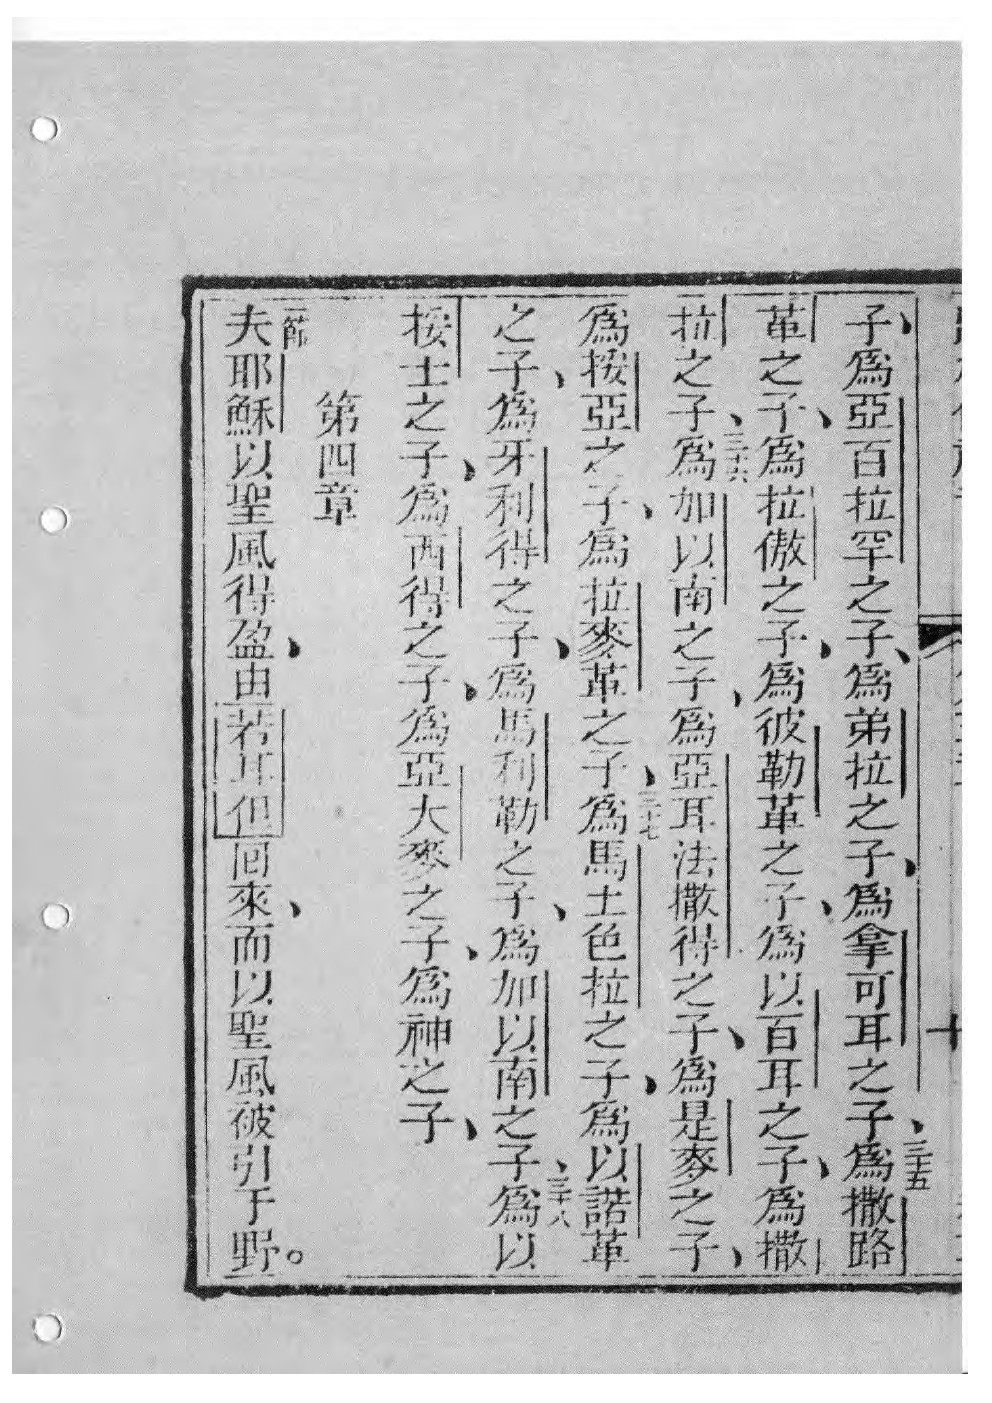 子、爲亞百拉罕之子、爲弟拉之子、爲拿可耳之子、三十五爲撒路
革之子、爲拉傲之子、爲彼勒革之子、爲以百耳之子、爲撒
拉之子、三十六爲加以南之子、爲亞耳法撒得之子、爲是麥之子、
爲挼亞之子、爲拉麥革之子、三十七爲馬土色拉之子、爲以諾革
之子、爲牙利得之子、爲馬利勒之子、爲加以南之子、三十八爲以
挼士之子、爲西得之子、爲亞大麥之子、爲神之子、
第四章
一節夫耶穌以聖風得盈、由若耳但回來、而以聖風被引于野。